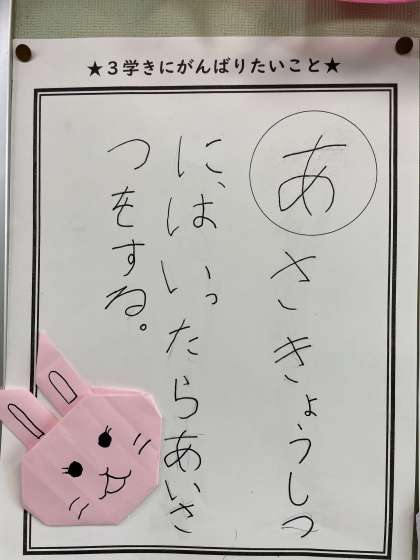 ★３学きにがんばりたいこと★
あさきょうしつ
に、はいったらあいさ
つをする。